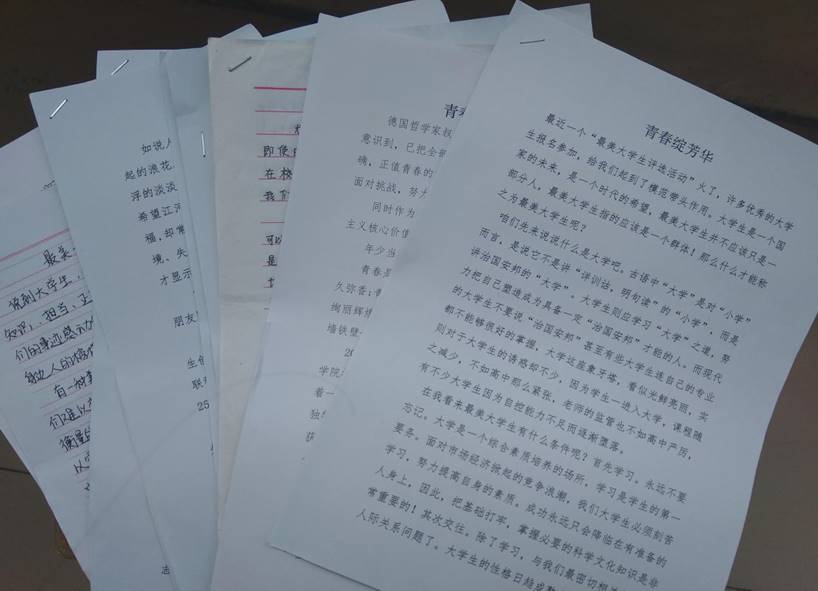 最采
说到大学生,
知识,担当,正
们的事迹感
有一种
们难以
以
如说人
起的浪花
浮的淡淡
希望江河
福,却常
境,失
才显示
朋友
生命
联系
25
即使
在校
我们
可以
是
青春
德国哲学家叔
意识到,已把全部
确,正值青春的
面对挑战,努力
同时作为
主义核心价值
年少当
青春是
久弥香;青
绚丽辉煌
墙铁壁
20
学院
着一
独
获
青春绽芳华
最近一个“最美大学生评选活动”火了,许多优秀的大学
生报名参加,给我们起到了模范带头作用。大学生是一个国
家的未来,是一个时代的希望,最美大学生并不应该只是一
部分人,最美大学生指的应该是一个群体!那么什么才能称
之为最美大学生呢?
咱们先来说说什么是大学吧。古语中“大学”是对“小学”
而言,是说它不是讲“详训诂,明句读”的“小学”,而是
讲治国安邦的“大学”。大学生则应学习“大学”之道,努
力把自己塑造成为具备一定“治国安邦”才能的人。而现代
的大学生不要说“治国安邦”甚至有些大学生连自己的专业
都不能够很好的掌握,大学这座象牙塔,看似光鲜亮丽,实
则对于大学生的诱惑却不少,因为学生一进入大学,课程随
之减少,不如高中那么紧张,老师的监管也不如高中严厉,
有不少大学生因为自控能力不足而逐渐堕落。
在我看来最美大学生有什么条件呢?首先学习。永远不要
忘记。大学是一个综合素质培养的场所,学习是学生的第一
要务。面对市场经济掀起的竞争浪潮,我们大学生必须刻苦
学习,努力提高自身的素质。成功永远只会降临在有准备的
人身上,因此,把基础打牢,掌握必要的科学文化知识是非
常重要的!其次交往。除了学习,与我们最密切相关
人际关系问题了。大学生的性格日趋成